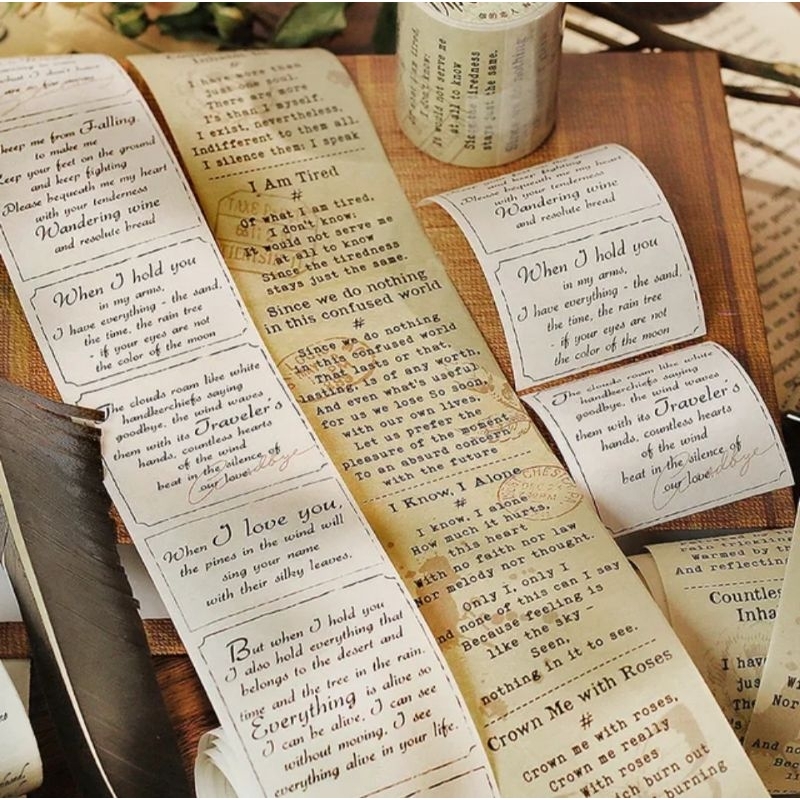 keep me from Falling
to make me
Keep your feet on the ground
and keep fighting
Please bequeath me my heart
with your tenderness
Wandering wine
and resolute bread
When I hold you
in my arms,
I have everything - the sand,
the time, the rain tree
- if your eyes are not
the color of the moon
The clouds roam like white
handkerchiefs saying
goodbye, the wind waves
them with its Traveler's
hands, countless hearts
of the wind
beat in the silence of
our love
Goodbye
When I love you,
the pines in the wind will
sing your name
with their silky leaves.
But when I hold you
I also hold everything that
belongs to the desert and
time and the tree in the rain.
Everything is alive so
I can be alive, I can see
without moving, I see
everything alive in your life.
I have more than
just one soul.
There are more
I's than I myself.
I exist, nevertheless,
Indifferent to them all.
I silence them: I speak
I Am Tired
#
Of what I am tired,
I don't know:
It would not serve me
at all to know
Since the tiredness
stays just the same.
Since we do nothing
in this confused world
#
Since we do nothing
in this confused world
That lasts or that,
lasting, is of any worth,
And even what's useful
for us we lose So soon,
with our own lives,
Let us prefer the
pleasure of the moment
To an absurd concern
with the future
I Know, I Alone
#
I know, I alone
How much it hurts,
this heart
With no faith nor law
Nor melody nor thought.
Only I, only I
And none of this can I say
Because feeling is
like the sky —
Seen,
nothing in it to see.
Crown Me with Roses
#
Crown me with roses,
Crown me really
With roses
which burn out
burning
I don't know:
It would not serve me
at all to know
Since the tiredness
stays just the same.
Please bequeath me my heart
with your tenderness
Wandering wine
and resolute bread
When I hold you
in my arms,
I have everything - the sand,
the time, the rain tree
- if your eyes are not
the color of the moon
The clouds roam like white
handkerchiefs saying
goodbye, the wind waves
them with its Traveler's
hands, countless hearts
of the wind
beat in the silence of
our love
Goodbye
Warmed by
And reflecting
Countles
Inha
I hav
jus
The